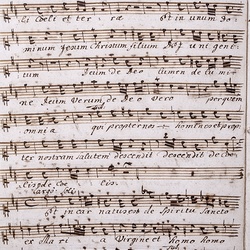 li Coeli et ter ra et in unum Do
minum Jesum Christum filium Dei uni genit
um Deum de Deo lumen de lu mi
ne Deum Verum de Deo vero per quem
omnia qui propter nos homines et prop
ter nostram salutem descendit descendit de coe
lis de Coe lis.
et in car natus est de Spiritu Sancto
ex Ma ri a Virgine et homo homo